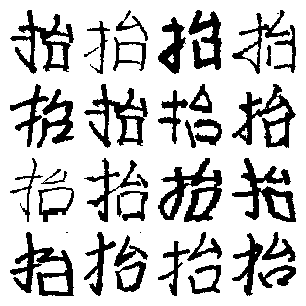 抬抬抬抬
抬抬抬抬
抬抬抬抬
抬抬抬抬